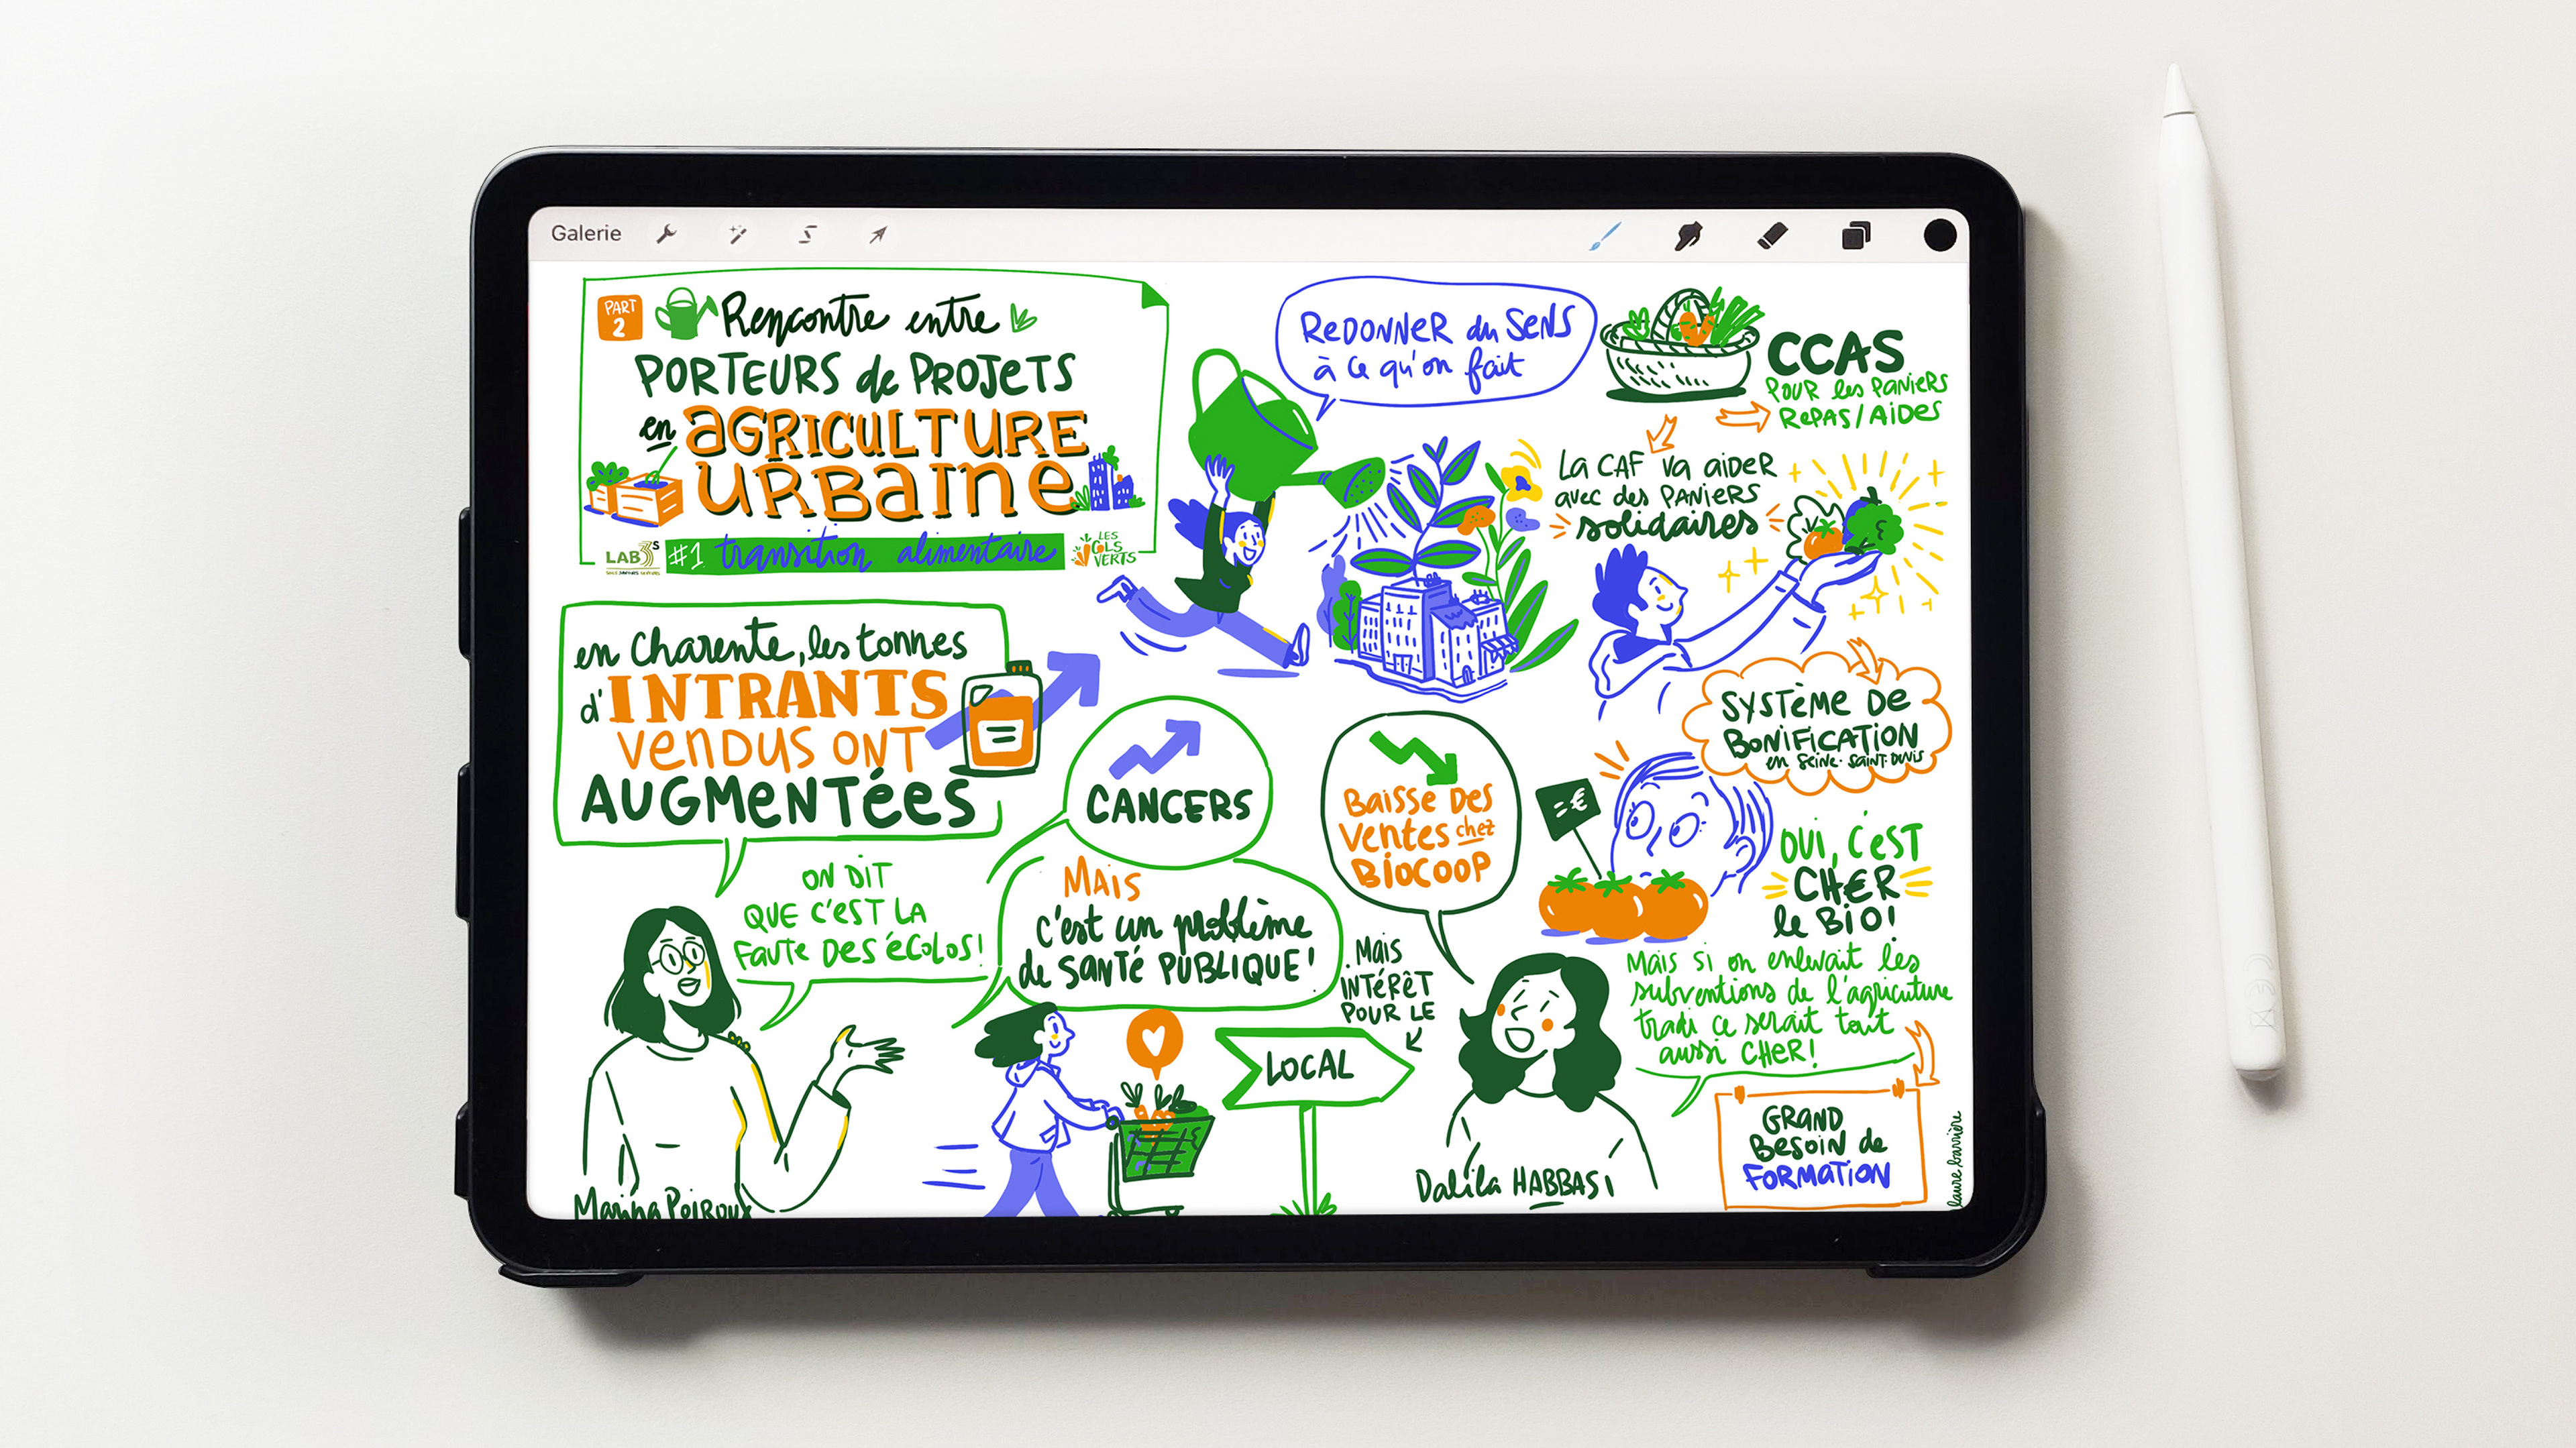 Galerie
PART
2
Rencontre entre
PORTEURS de PROJETS
en AGRICULTURE
URBAINE
LAB3S
#1 transition alimentaire
LES
COLS
VERTS
REDONNER du SENS
à ce qu'on fait
CCAS
POUR les PANIERS
REPAS/AIDES
La CAF va aider
avec des PANIERS
solidaires
SYSTÈME DE
BONIFICATION
en SEINE-SAINT-DENIS
en Charente, les tonnes
d'INTRANTS
VENDUS ONT
AUGMENTÉES
ON DIT
QUE C'EST LA
FAUTE DES ÉCOLOS!
CANCERS
MAIS
C'est un problème
de SANTÉ PUBLIQUE!
Marina Peiroux
BAISSE DES
VENTES chez
BIOCOOP
MAIS
INTÉRÊT
POUR LE
LOCAL
=€
OUI, C'EST
CH€R
le BIO!
Mais si on enlevait les
subventions de l'agricuture
tradi ce serait tout
aussi CHER!
Dalila HABBASI
GRAND
BESOIN de
FORMATION
laure barrière